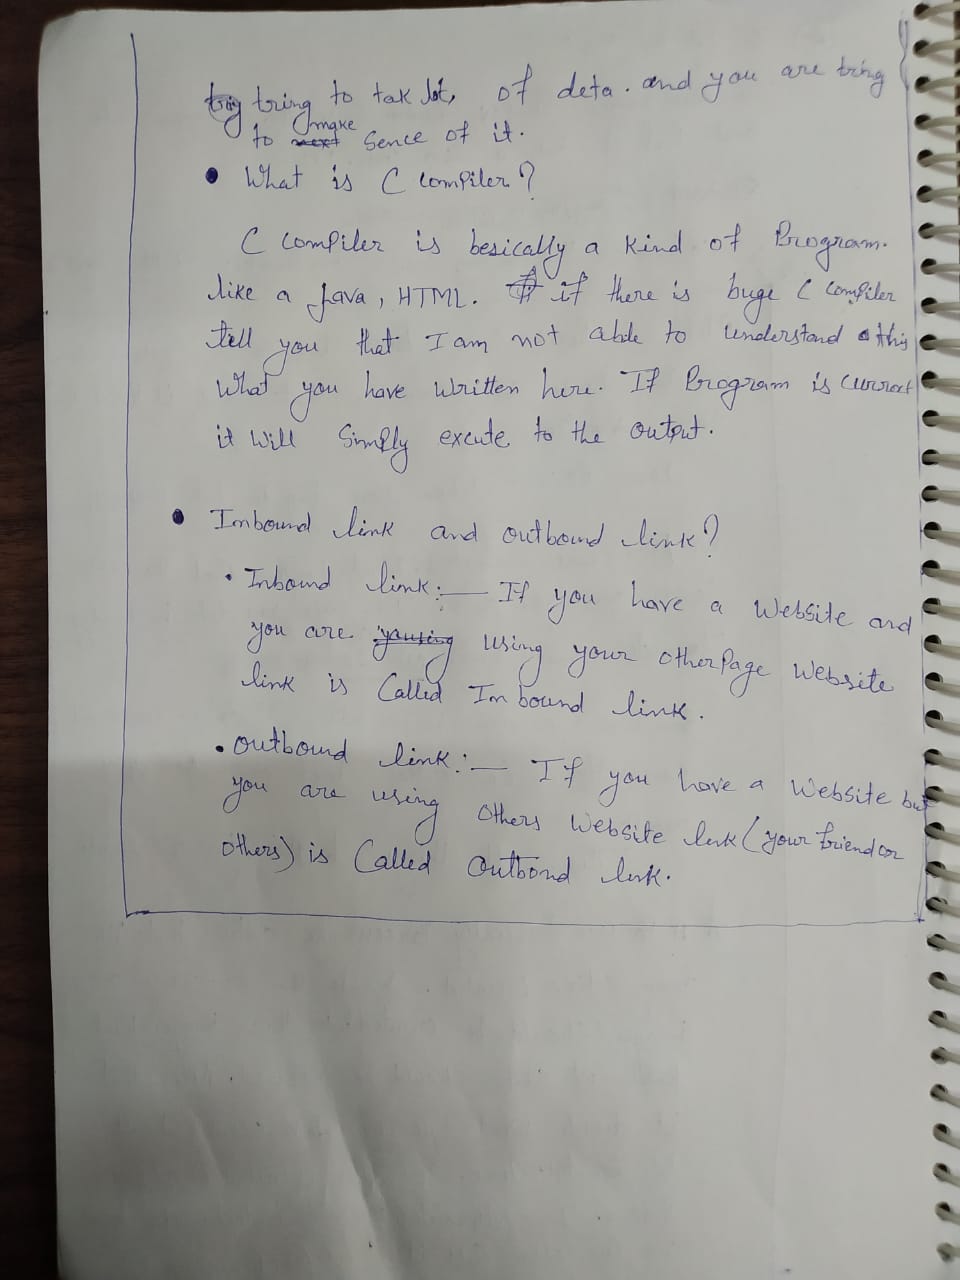 tring to tak lot, of deta. and you are tring
to make sence of it.
• What is C Compiler?
C Compiler is besically a kind of Program.
like a Java, HTML. if there is buge C Compiler
tell you that I am not able to understand this
what you have written here. If Program is currect
it will Simply excute to the output.
• Inbound link and outbound link?
• Inbound link:— If you have a Website and
you are using your other Page Website
link is Called Inbound link.
• Outbound link:— If you have a Website but
you are using others Website link (your friend or
others) is Called Outbond link.